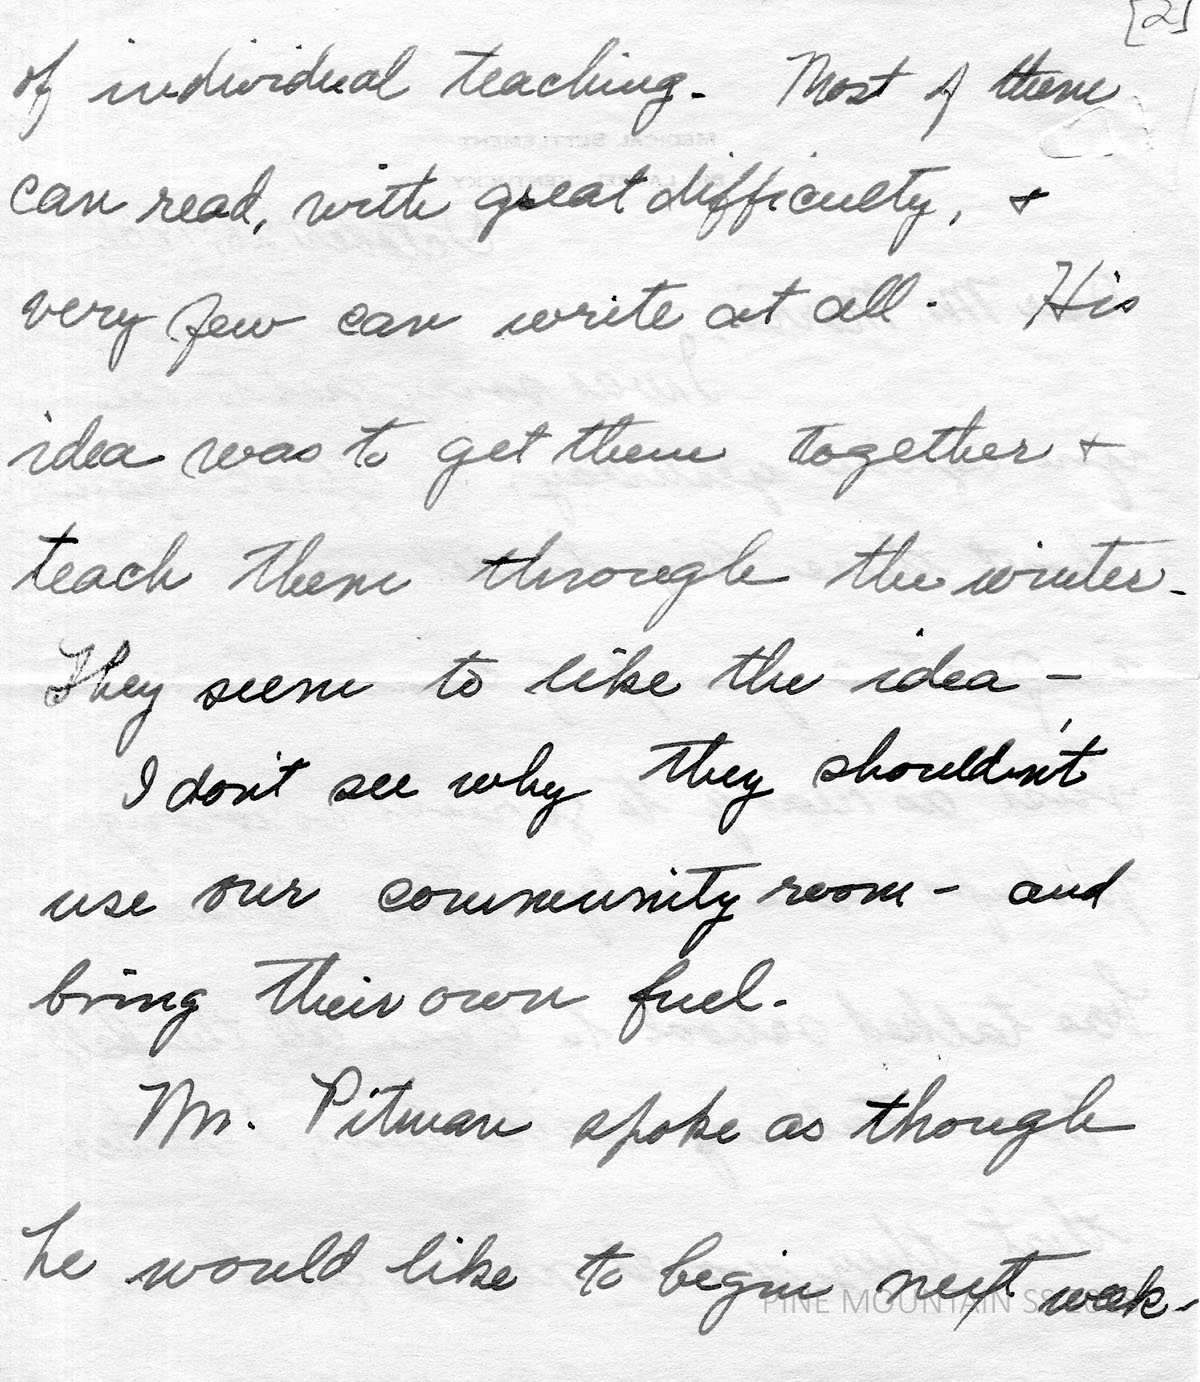 [2]
of individual teaching. Most of them
can read, with great difficulty, &
very few can write at all. His
idea was to get them together &
teach them through the winter.
They seem to like the idea -
I don't see why they shouldn't
use our community room - and
bring their own fuel.
Mr. Pitman spoke as though
he would like to begin next week.
PINE MOUNTAIN